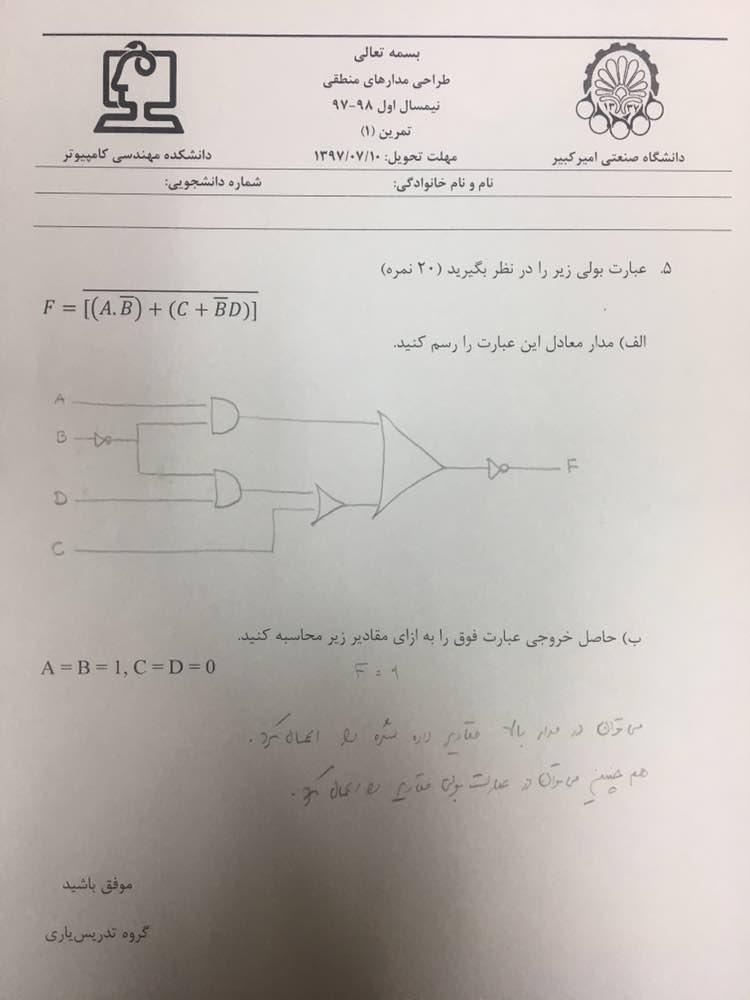 بسمه تعالی
طراحی مدارهای منطقی
نیمسال اول ۹۸-۹۷
تمرین (۱)
۱۳ ۳۷
دانشگاه صنعتی امیرکبیر
مهلت تحویل: ۱۳۹۷/۰۷/۱۰
دانشکده مهندسی کامپیوتر
نام و نام خانوادگی: شماره دانشجویی:
۵. عبارت بولی زیر را در نظر بگیرید (۲۰ نمره)
F = \overline{[(A.\overline{B}) + (C + \overline{B}D)]}
الف) مدار معادل این عبارت را رسم کنید.
A
B
F
D
C
ب) حاصل خروجی عبارت فوق را به ازای مقادیر زیر محاسبه کنید.
A = B = 1, C = D = 0
F = 1
می توان در مدار بالا مقادیر داده شده را اعمال کرد.
هم چنین می توان در عبارت بولی مقادیر را اعمال کرد.
موفق باشید
گروه تدریس‌یاری